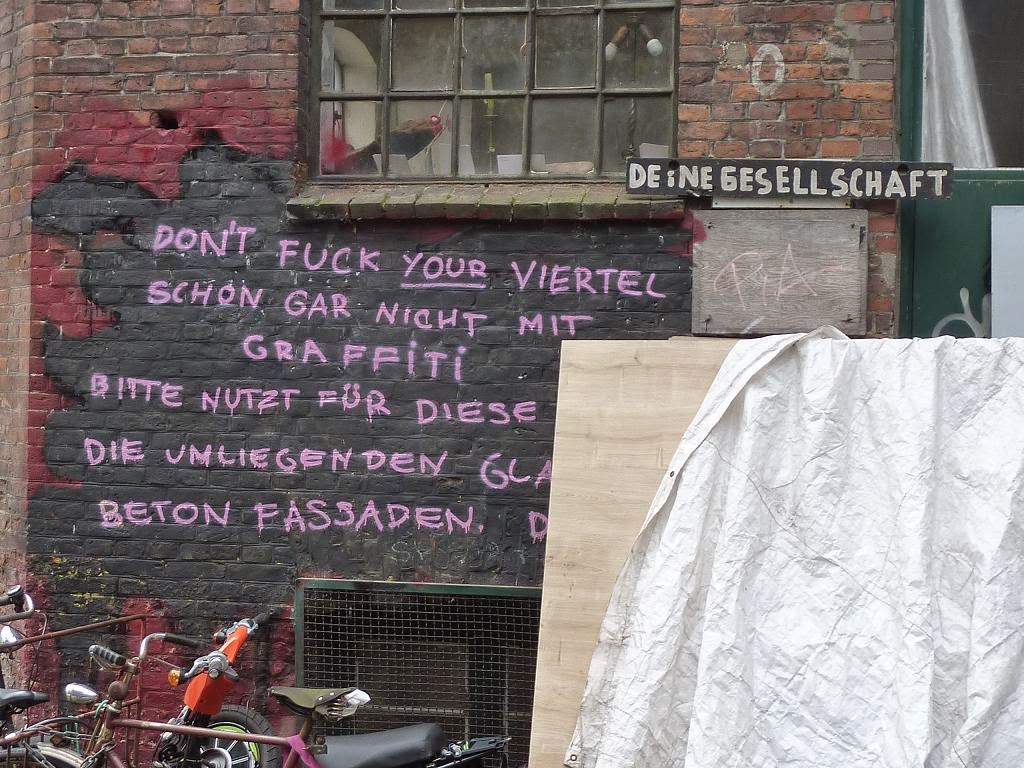 DEiNE GESELLSCHAFT
DON'T FUCK YOUR VIERTEL
SCHON GAR NICHT MIT
GRAFFiTi
BITTE NUTZT FÜR DIESE
DIE UMLIEGENDEN GLA
BETON FASSADEN. D